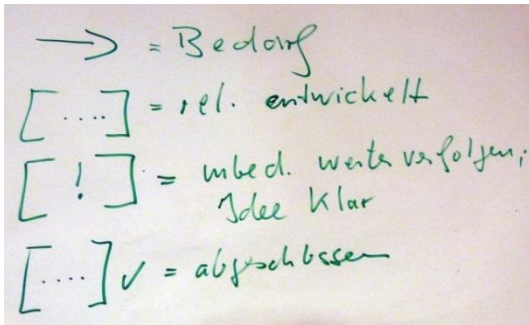 → = Bedarf
[....] = rel. entwickelt
[ ! ] = unbed. weiter verfolgen,
Idee Klar
[....] ✓ = abgeschlossen